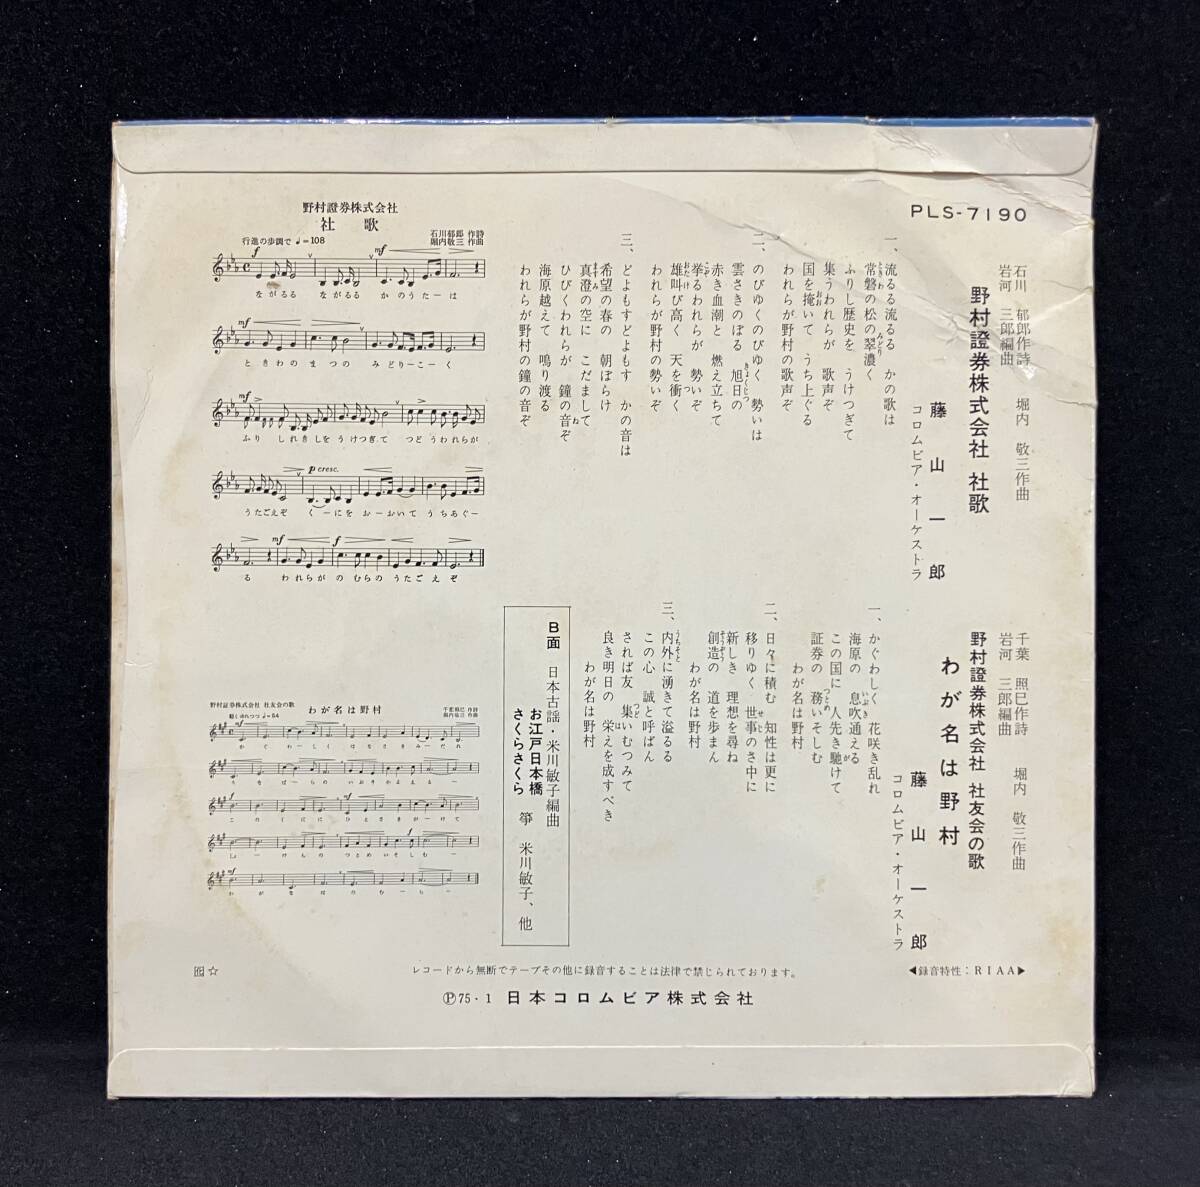 PLS-7190
石川 郁郎作詩 堀内 敬三作曲
岩河 三郎編曲
野村證券株式会社 社歌
藤山一郎
コロムビア・オーケストラ
一、流るる流るる かの歌は
常磐の松の翠濃く
ふりし歴史を うけつぎて
集うわれらが 歌声ぞ
国を掩いて うち上ぐる
われらが野村の歌声ぞ
二、のびゆくのびゆく 勢いは
雲さきのぼる 旭日の
赤き血潮と 燃え立ちて
挙るわれらが 勢いぞ
雄叫び高く 天を衝く
われらが野村の勢いぞ
三、どよもすどよもす かの音は
希望の春の 朝ぼらけ
真澄の空に こだまして
ひびくわれらが 鐘の音ぞ
海原越えて 鳴り渡る
われらが野村の鐘の音ぞ
千葉 照巳作詩 堀内 敬三作曲
岩河 三郎編曲
野村證券株式会社 社友会の歌
わが名は野村
藤山一郎
コロムビア・オーケストラ
一、かぐわしく 花咲き乱れ
海原の 息吹通える
この国に 人先き馳けて
証券の 務いそしむ
わが名は野村
二、日々に積む 知性は更に
移りゆく 世事のさ中に
新しき 理想を尋ね
創造の 道を歩まん
わが名は野村
三、内外に湧きて溢るる
この心 誠と呼ばん
されば友 集いむつみて
良き明日の 栄えを成すべき
わが名は野村
B面 日本古謡・米川敏子編曲
お江戸日本橋
さくらさくら 箏 米川敏子、他
野村證券株式会社
社歌
石川郁郎 作詩
堀内敬三 作曲
行進の歩調で ♩=108
f
mf
ながるる ながるる かのうたーは
mf
f
ときわの まつの みどりーこーく
mf
ふり しれきしをうけつぎて つどうわれらが
p cresc.
うたごえぞ くーにを おーおいて うちあぐー
mf
f
る われらが のむらの うたごえ ぞ
野村證券株式会社 社友会の歌
わが名は野村
千葉照巳 作詩
堀内敬三 作曲
軽くゆれつつ ♩=54
mf
かぐわーしく はなさきみーだれ
うなばーらの いぶきかよえるー
f
mf
このくにに ひとさきがーけて
しょーけんの つとめいそしむー
mf
わがなはのむーらー
◀録音特性：RIAA▶
レコードから無断でテープその他に録音することは法律で禁じられております。
Ⓟ75・1 日本コロムビア株式会社